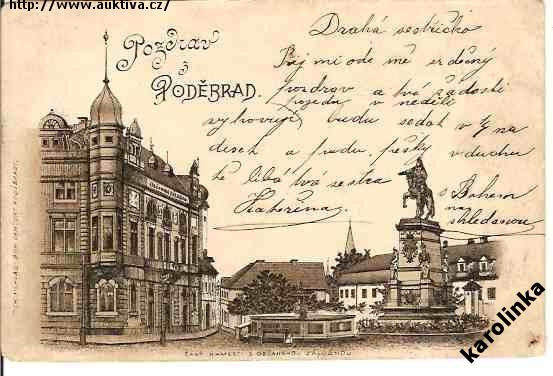 http://www.auktiva.cz/
Pozdrav
z
PODĚBRAD.
Drahá sestřičko
Přij mi ode mě srdečný
pozdrav a tvá žádosti
v neděli
vyhovuji budu sedat v na
desek a pudu pěšky v duchu
tě líbá tvá sestra
Kateřina
s Bohem
na
shledanou
OBČANSKÁ ZÁLOŽNA
ČÁST NÁMĚSTÍ S OBČANSKOU ZÁLOŽNOU
karolinka